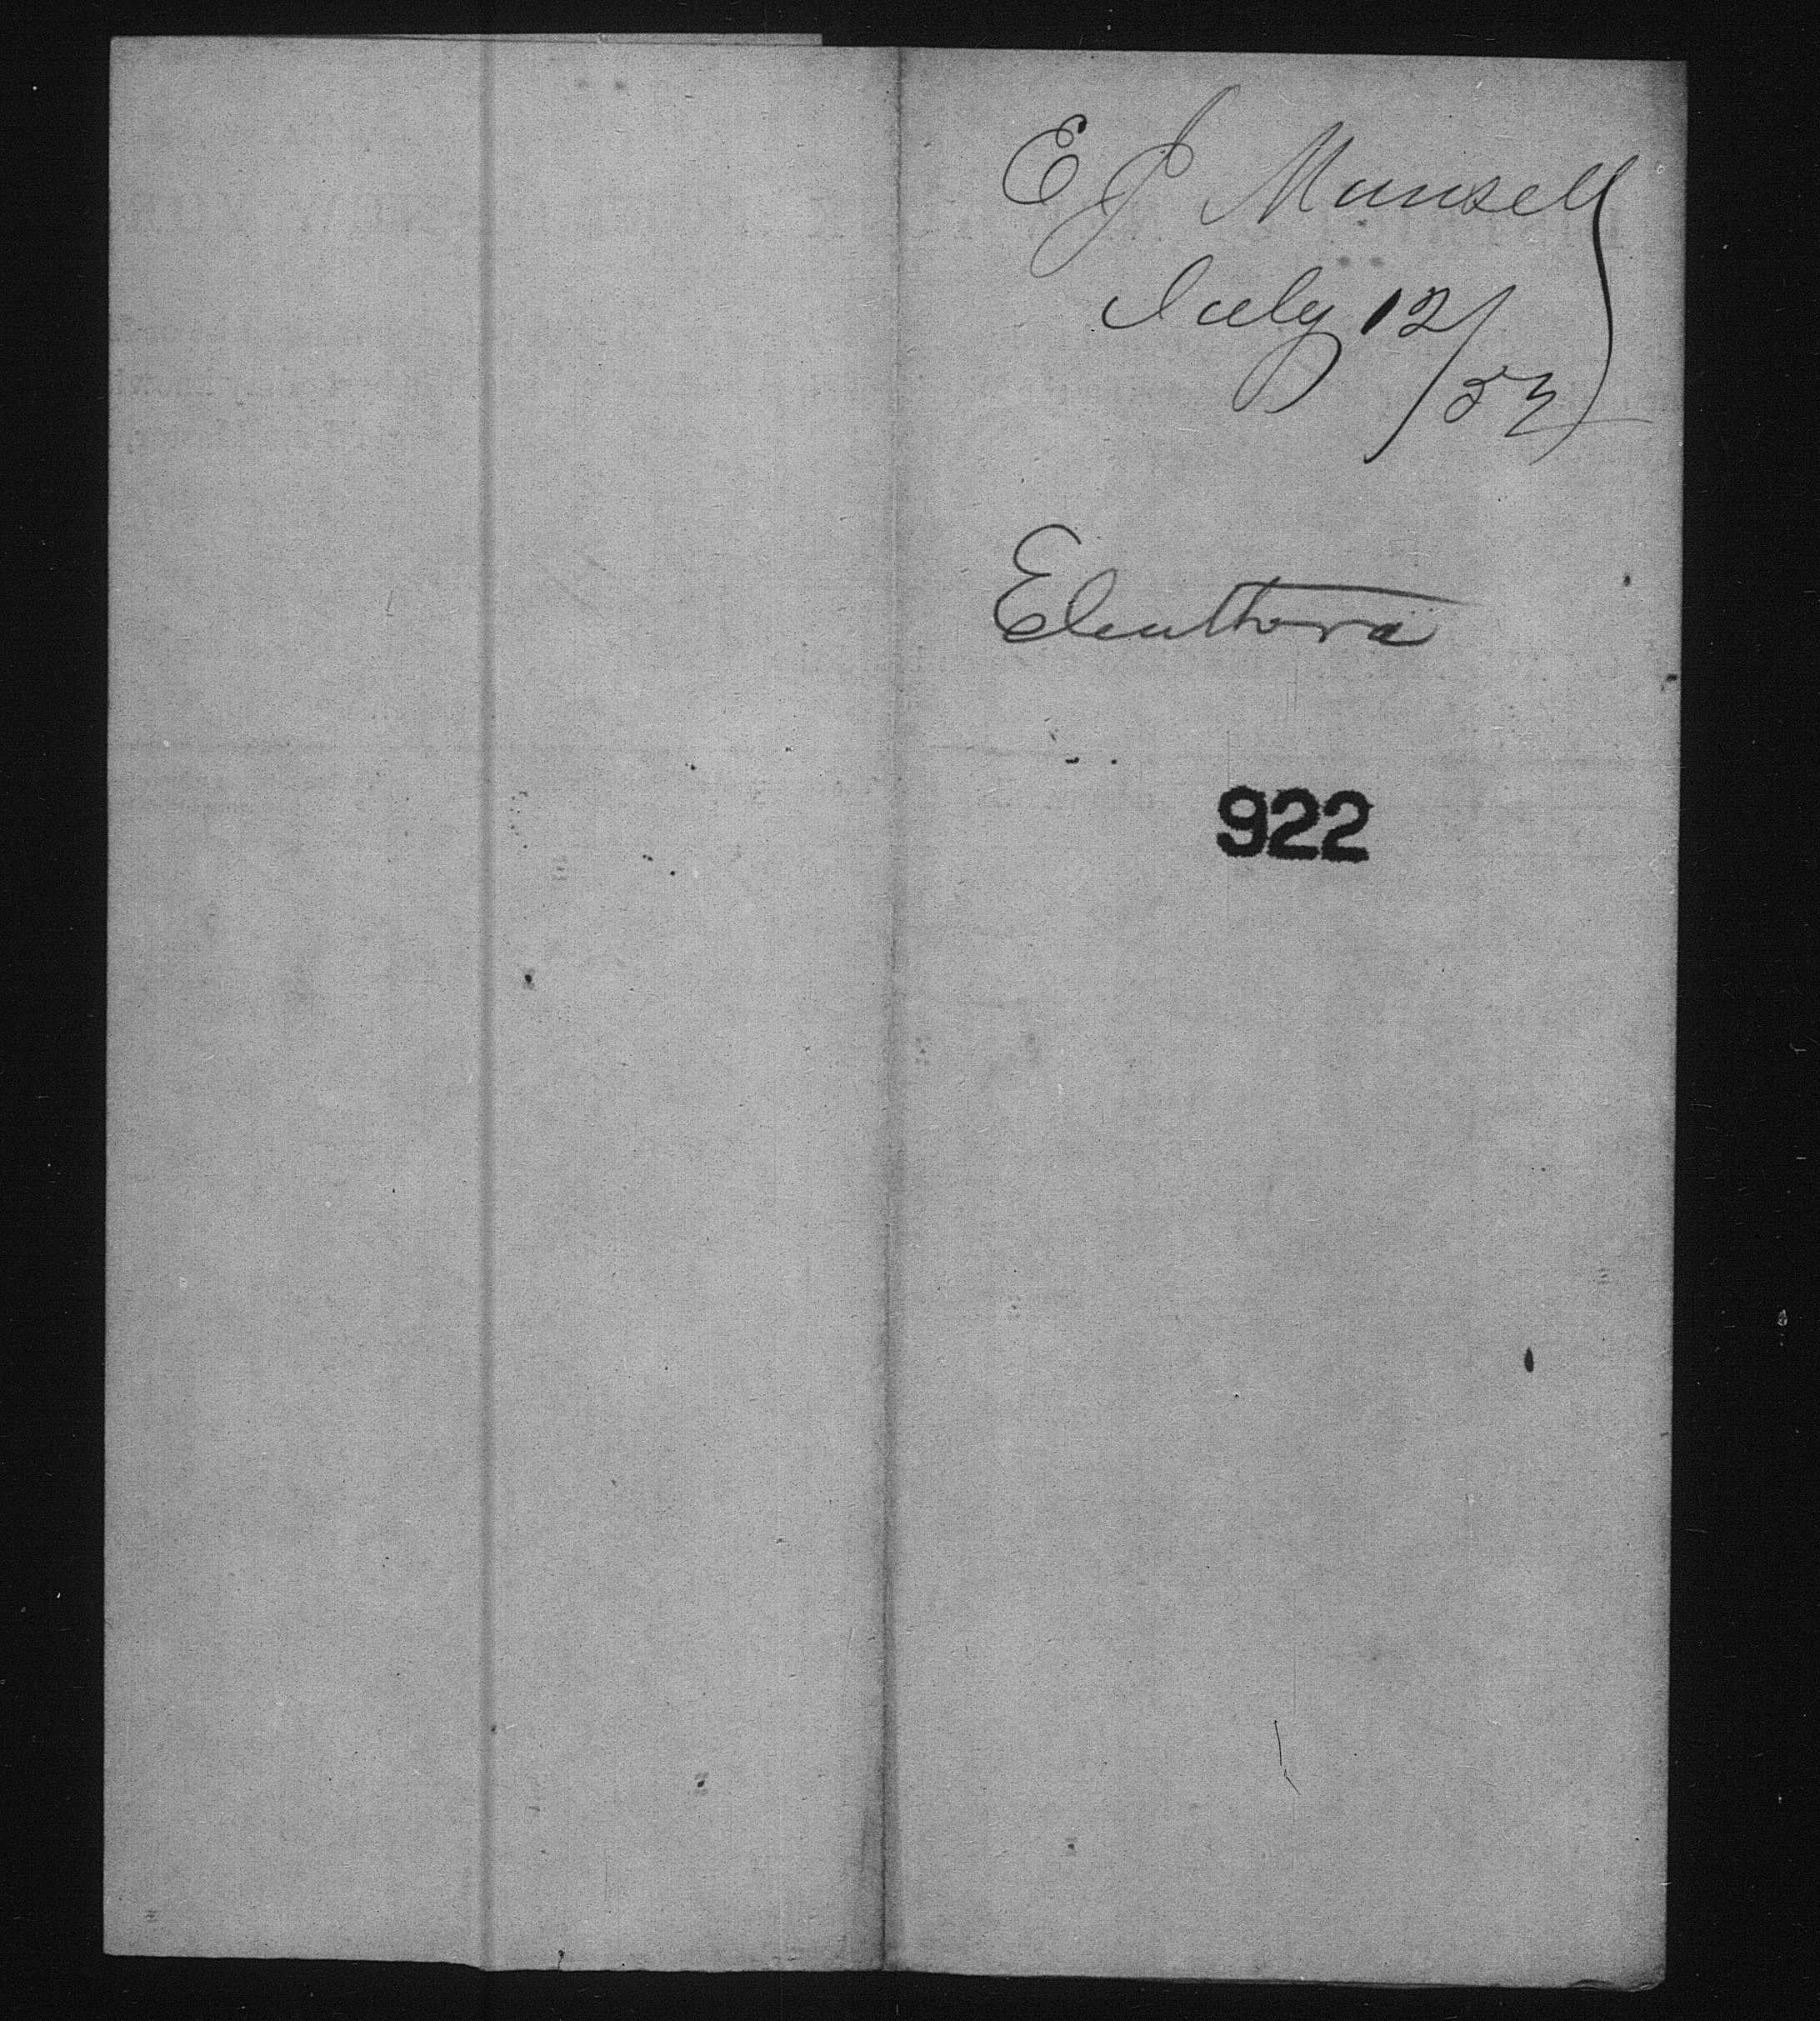 E J Munsell
July 12/53
Eleuthera
922